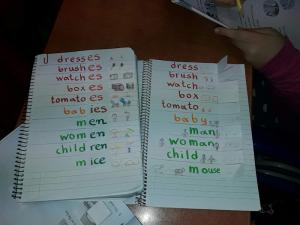 dresses
brushes
watches
boxes
tomatoes
babies
men
women
children
mice
dress
brush
watch
box
tomato
baby
man
woman
child
mouse